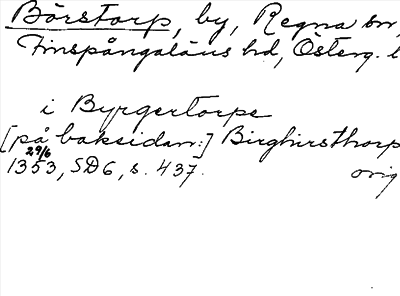 Börstorp, by, Regna sn,
Finspångaläns hd, Österg. l
i Byrgertorpe
[på baksidan:] Birghirsthorp
29/6
1353, SD 6, s. 437. orig